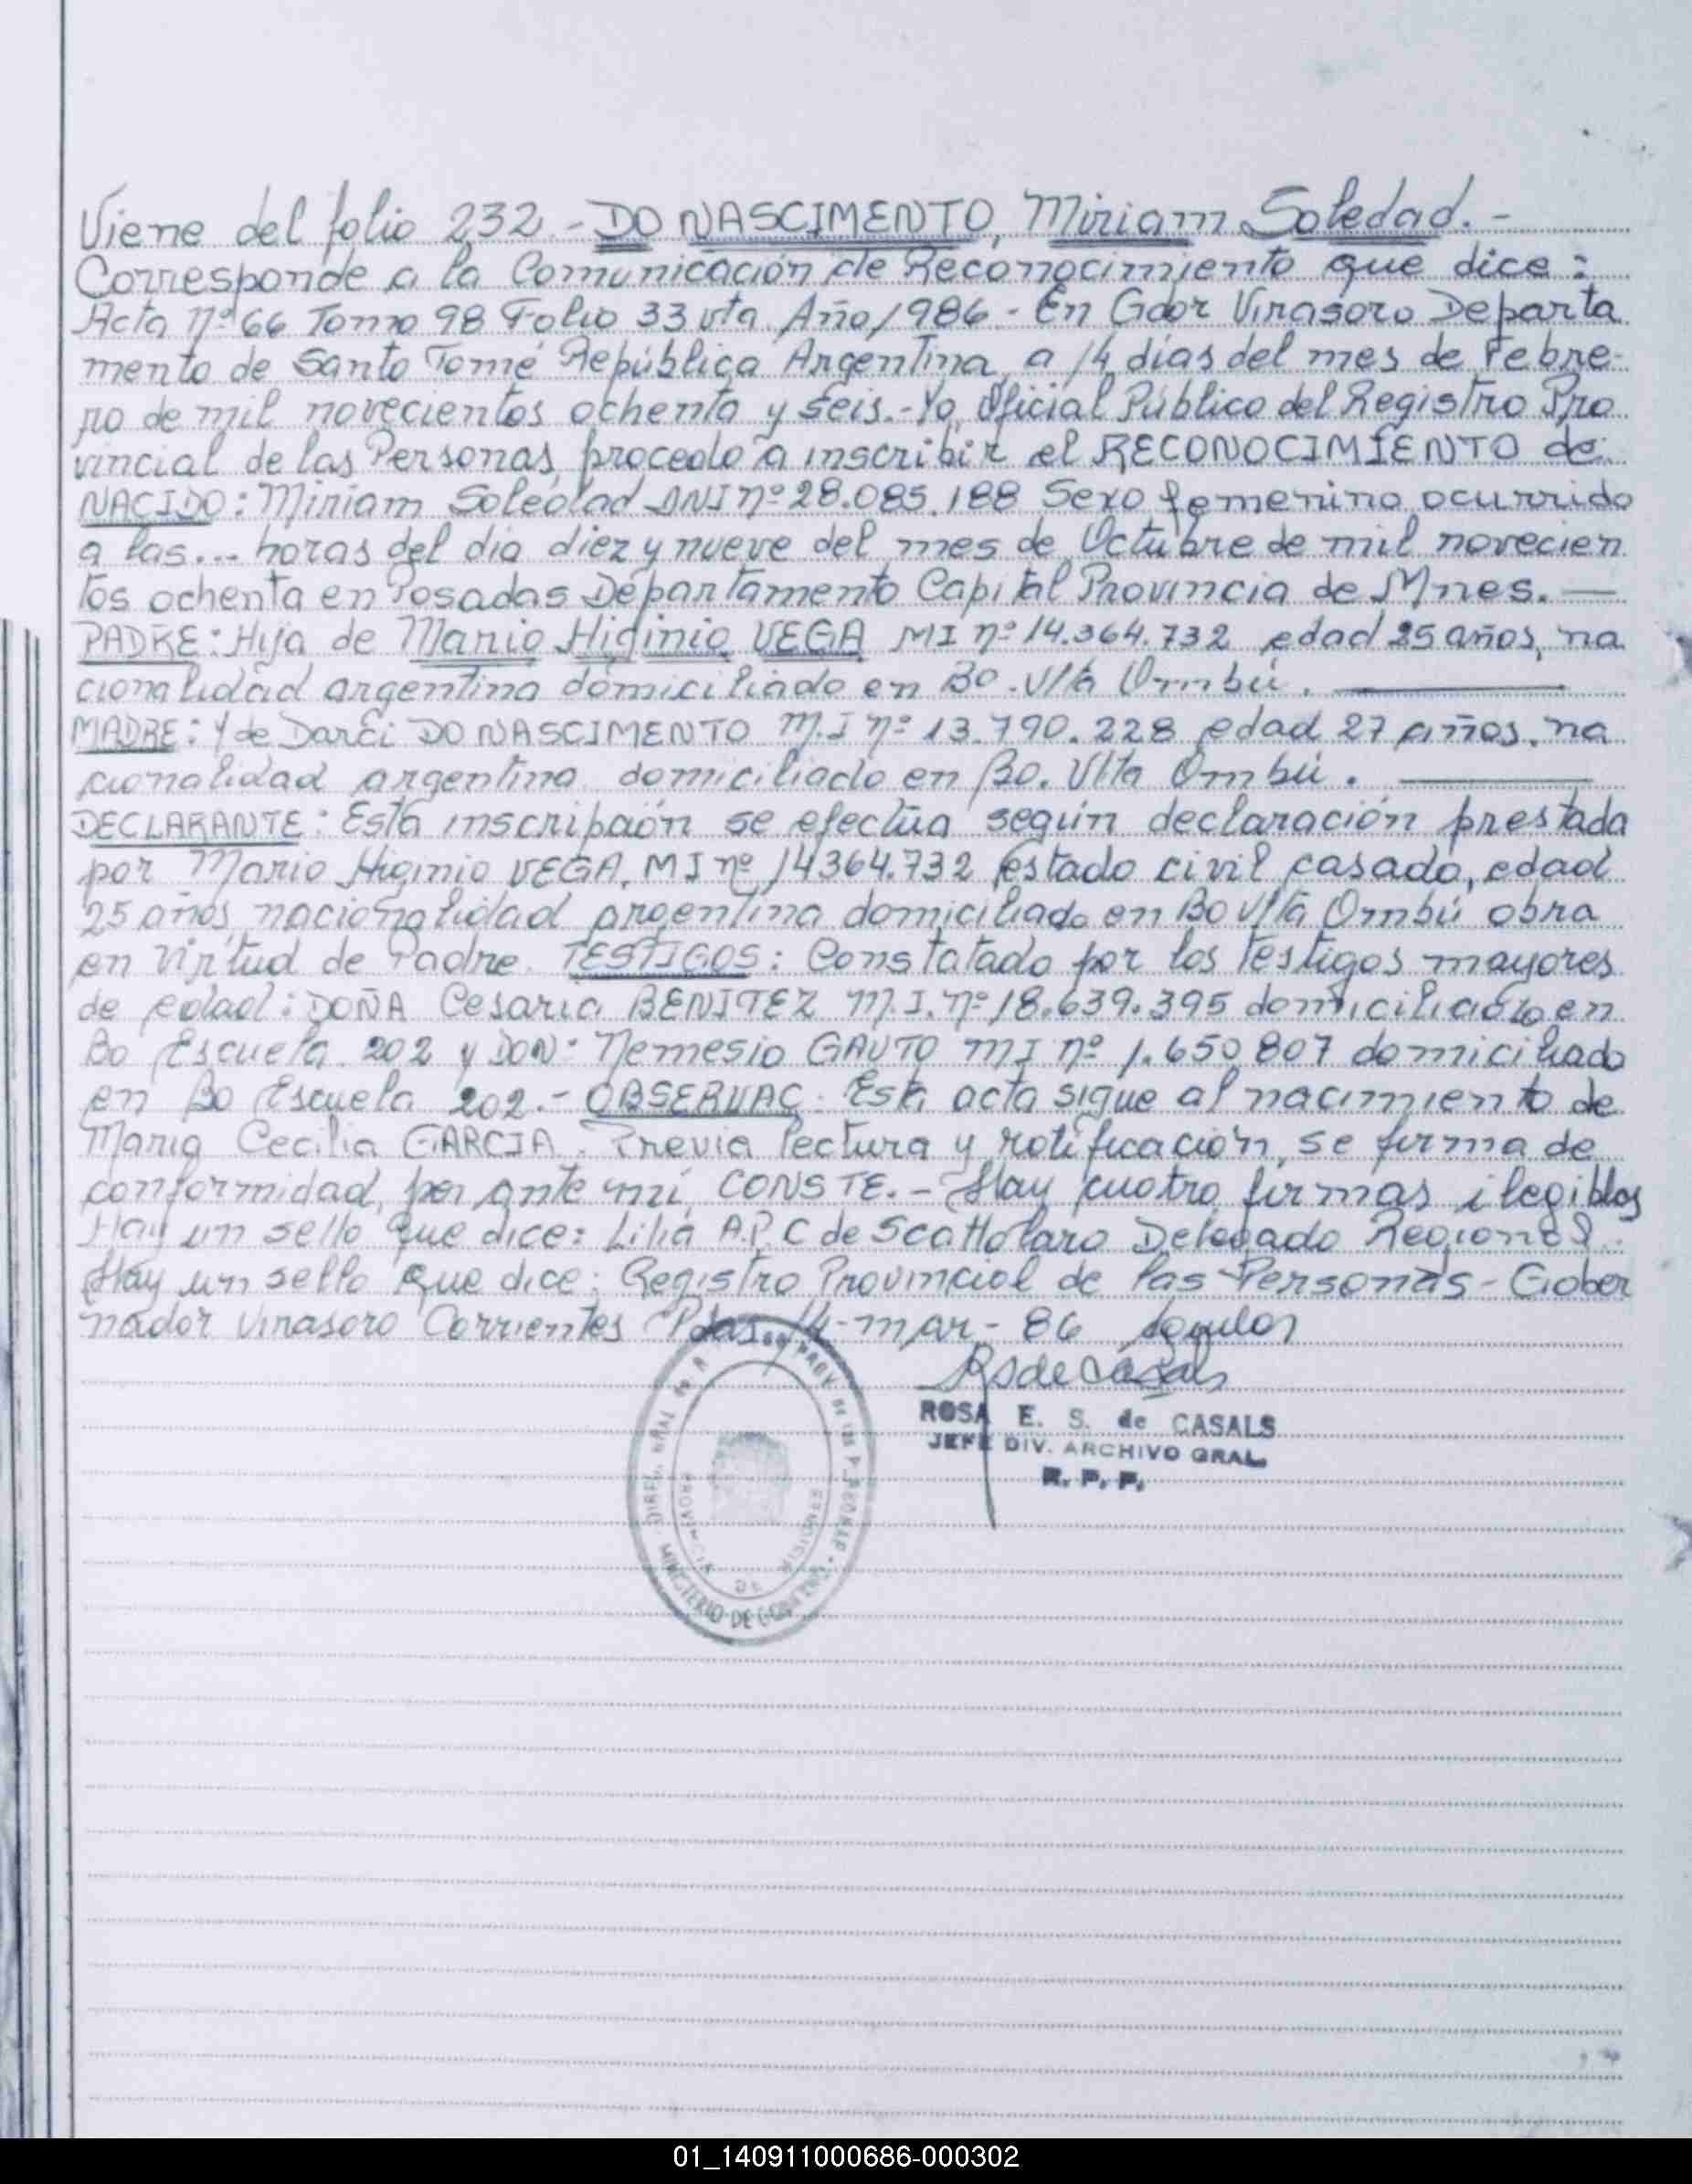 Viene del folio 232.- DO NASCIMENTO, Miriam Soledad.-
Corresponde a la Comunicación de Reconocimiento que dice:
Acta nº 66 Tomo 98 Folio 33 vta. Año 1986.- En Gdor Virasoro Departa
mento de Santo Tomé República Argentina, a 14 días del mes de Febre-
ro de mil novecientos ochenta y seis.- Yo, Oficial Público del Registro Pro
vincial de las Personas, procedo a inscribir el RECONOCIMIENTO de
NACIDO: Miriam Soledad DNI nº 28.085.188 Sexo femenino ocurrido
a las... horas del dia diez y nueve del mes de Octubre de mil novecien
tos ochenta en Posadas Departamento Capital Provincia de Mnes. —
PADRE: Hija de Mario Higinio VEGA MI nº 14.364.732 edad 25 años, na
cionalidad argentina domiciliado en Bo. Vta Ombú. —
MADRE: Y de Darci DO NASCIMENTO M.I nº 13.790.228 edad 27 años, na
cionalidad argentina domiciliado en Bo. Vlta Ombú. —
DECLARANTE: Esta inscripción se efectúa según declaración prestada
por Mario Higinio VEGA, MI nº 14364.732 estado civil casado, edad
25 años, nacionalidad argentina domiciliado en Bo Vlta Ombú obra
en virtud de Padre. TESTIGOS: Constatado por los testigos mayores
de edad: DOÑA Cesaria BENITEZ M.I. nº 18.639.395 domiciliado en
Bo Escuela 202 y DON: Nemesio GAUTO MI nº 1.650.807 domiciliado
en Bo Escuela 202.- OBSERVAC. Esta acta sigue al nacimiento de
Maria Cecilia GARCIA. Previa lectura y notificación, se firma de
conformidad, por ante mí, CONSTE.- Hay cuatro firmas ilegibles
Hay un sello que dice: Lilia A.P.C de Scattolaro Delegado Regional.
Hay un sello que dice: Registro Provincial de las Personas - Gober
nador Virasoro Corrientes Pdas. 14-mar-86
RSdeCasals
ROSA E. S. de CASALS
JEFE DIV. ARCHIVO GRAL.
R. P. P.
PROVINCIA DE MISIONES
MINISTERIO DE GOBIERNO
01_140911000686-000302